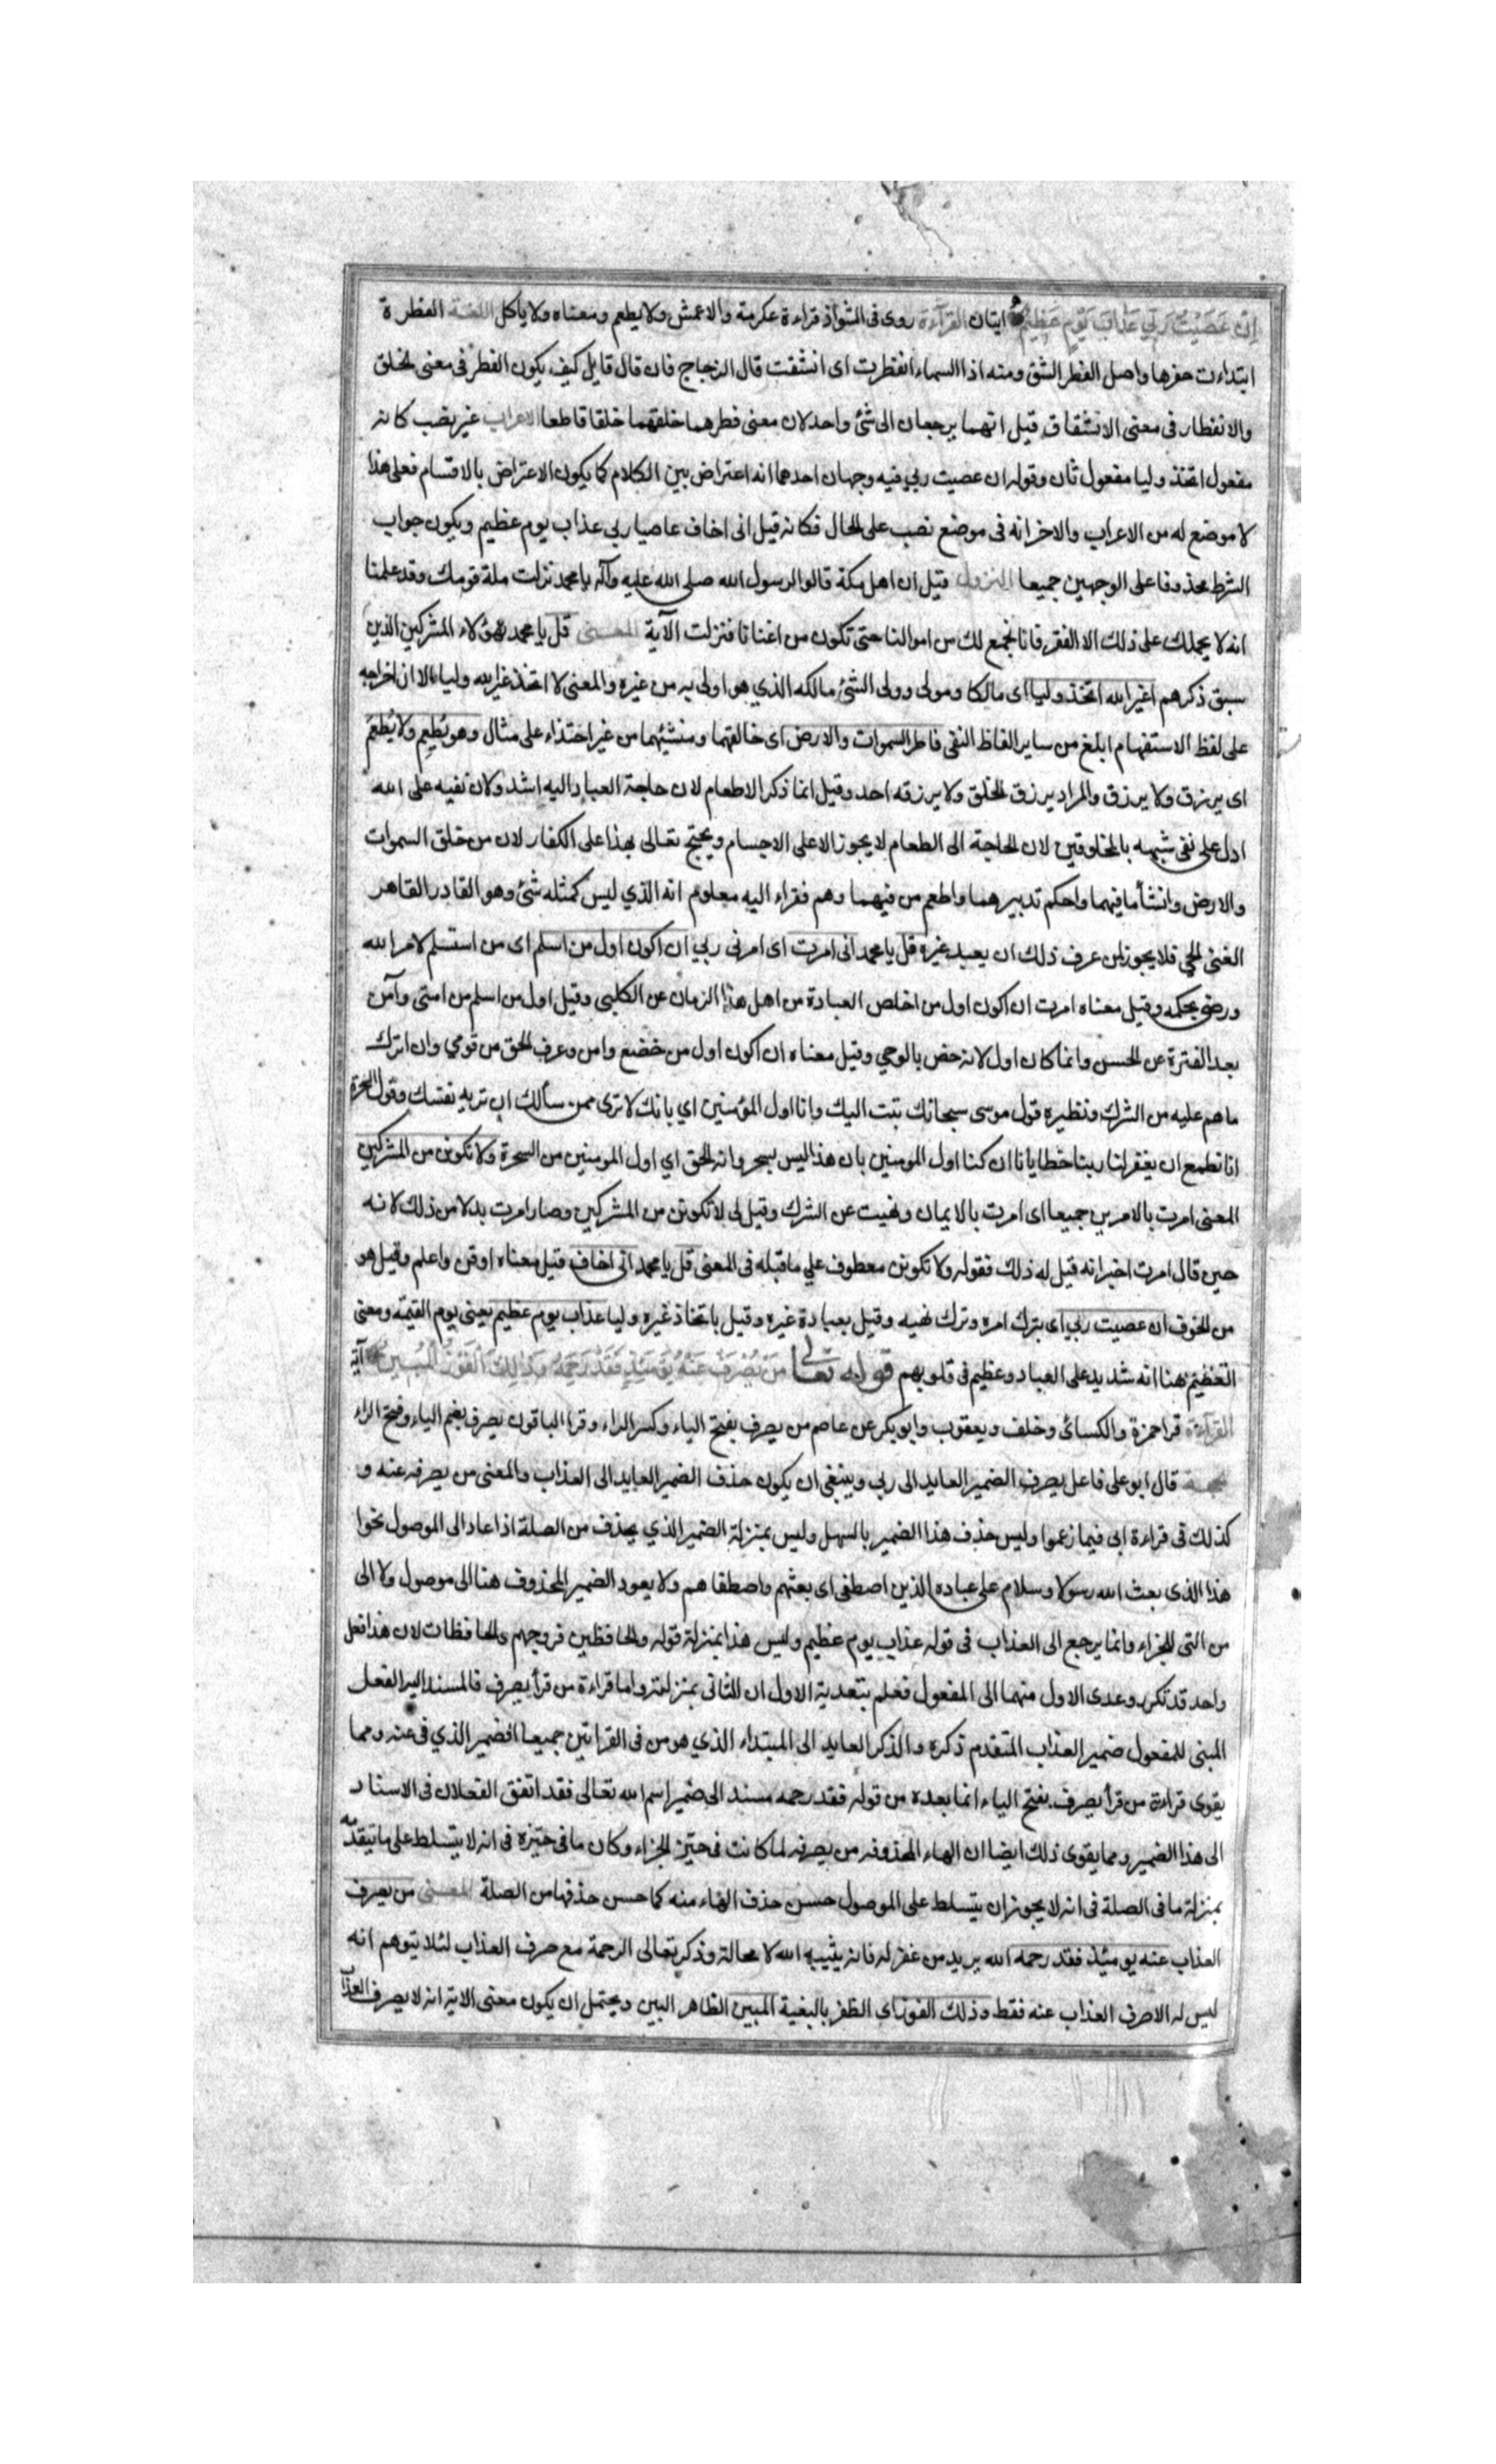 إِنْ عَصَيْتُ رَبِّي عَذَابَ يَوْمٍ عَظِيمٍ ايتان القرآءة روى فى الشواذ قراءة عكرمة والاعمش ولا يطعم ومعناه ولا ياكل اللغة الفطرة
ابتداءت حفرها واصل الفطر الشق ومنه اذا السماء انفطرت اى انشقت قال الزجاج فان قال قايل كيف يكون الفطر فى معنى الخلق
والانفطار فى معنى الانشقاق قيل انهما يرجعان الى شئ واحد لان معنى فطرهما خلقهما خلقا قاطعا الاعراب غير نصب كانه
مفعول اتخذ وليا مفعول ثان وقوله ان عصيت ربي فيه وجهان احدهما انه اعتراض بين الكلام كما يكون الاعتراض بالاقسام فعلى هذا
لا موضع له من الاعراب والاخر انه فى موضع نصب على الحال فكانه قيل انى اخاف عاصيا ربى عذاب يوم عظيم ويكون جواب
الشرط محذوفا على الوجهين جميعا النزول قيل ان اهل مكة قالوا لرسول الله صلى الله عليه وآله يا محمد تركت ملة قومك وقد علمنا
انه لا يحملك على ذلك الا الفقر فانا نجمع لك من اموالنا حتى تكون من اغنانا فنزلت الآية المعنى قل يا محمد لهؤلاء المشركين الذين
سبق ذكرهم اغير الله اتخذ وليا اى مالكا ومولى وولى الشئ مالكه الذي هو اولى به من غيره والمعنى لا اتخذ غير الله وليا الا ان اخراجه
على لفظ الاستفهام ابلغ من ساير الفاظ النفى فاطر السموات والارض اى خالقهما ومنشئهما من غير احتذاء على مثال وهو يُطعِم ولا يُطعَم
اى يرزق ولا يرزق والمراد يرزق الخلق ولا يرزقه احد وقيل انما ذكر الاطعام لان حاجة العباد اليه اشد ولان نفيه على الله
ادل على نفى شبهه بالمخلوقين لان الحاجة الى الطعام لا يجوز الا على الاجسام ويحتج تعالى بهذا على الكفار لان من خلق السموات
والارض وانشأ ما فيهما واحكم تدبيرهما واطعم من فيهما وهم فقراء اليه معلوم انه الذي ليس كمثله شئ وهو القادر القاهر
الغنى الحي فلا يجوز لمن عرف ذلك ان يعبد غيره قل يا محمد انى امرت اى امرنى ربي ان اكون اول من اسلم اى من استسلم لامر الله
ورضى بحكمه وقيل معناه امرت ان اكون اول من اخلص العبادة من اهل هذا الزمان عن الكلبى وقيل اول من اسلم من امتى وآمن
بعد الفترة عن الحسن وانما كان اول لانه خص بالوحي وقيل معناه ان اكون اول من خضع وامن وعرف الحق من قومي وان اترك
ما هم عليه من الشرك ونظيره قول موسى سبحانك تبت اليك وانا اول المؤمنين اي بانك لا ترى ممن سألك ان تريه نفسك وقول السحرة
انا نطمع ان يغفر لنا ربنا خطايانا ان كنا اول المومنين بان هذا ليس بسحر وانه الحق اي اول المومنين من السحرة ولا تكونن من المشركين
المعنى امرت بالامرين جميعا اى امرت بالايمان ونهيت عن الشرك وقيل لى لا تكونن من المشركين وصار امرت بدلا من ذلك لانه
حين قال امرت اخبر انه قيل له ذلك فقوله ولا تكونن معطوف علي ما قبله فى المعنى قل يا محمد انى اخاف قيل معناه اوقن واعلم وقيل هو
من الخوف ان عصيت ربي اى بترك امره وترك نهيه وقيل بعبادة غيره وقيل باتخاذ غيره وليا عذاب يوم عظيم يعنى يوم القيمة ومعنى
التعظيم هنا انه شديد على العباد وعظيم فى قلوبهم قوله تعالى مَنْ يُصْرَفْ عَنْهُ يَوْمَئِذٍ فَقَدْ رَحِمَهُ وَذَلِكَ الْفَوْزُ الْمُبِينُ آية
القرآءة قرا حمزة والكسائى وخلف ويعقوب وابو بكر عن عاصم من يصرف بفتح الياء وكسر الراء وقرا الباقون يصرف بضم الياء وفتح الراء
الحجة قال ابو على فاعل يصرف الضمير العايد الى ربي وينبغى ان يكون حذف الضمير العايد الى العذاب والمعنى من يصرفه عنه و
كذلك فى قراءة ابى فيما زعموا وليس حذف هذا الضمير بالسهل وليس بمنزلة الضمير الذي يحذف من الصلة اذا عاد الى الموصول نحوا
هذا الذى بعث الله رسولا وسلام على عباده الذين اصطفى اى بعثهم واصطفاهم ولا يعود الضمير المحذوف هنا الى موصول ولا الى
من التى للجزاء وانما يرجع الى العذاب فى قوله عذاب يوم عظيم وليس هذا بمنزلة قوله والحافظين فروجهم والحافظات لان هذا فعل
واحد قد تكرر وعدى الاول منهما الى المفعول فعلم بتعدية الاول ان الثانى بمنزلته واما قراءة من قرأ يصرف فالمسند اليه الفعل
المبنى للمفعول ضمير العذاب المتقدم ذكره والذكر العايد الى المبتداء الذي هو من فى القراتين جميعا الضمير الذي فى عنه ومما
يقوى قراءة من قرأ يصرف بفتح الياء انما بعده من قوله فقد رحمه مسند الى ضمير اسم الله تعالى فقد اتفق الفعلان فى الاسناد
الى هذا الضمير ومما يقوى ذلك ايضا ان الهاء المحذوفه من يصرفه لما كانت فى حيز الجزاء وكان ما فى حيزه فى انه لا يتسلط على ما تيقدمه
بمنزلة ما فى الصلة فى انه لا يجوز ان يتسلط على الموصول حسن حذف الهاء منه كما حسن حذفها من الصلة المعنى من يصرف
العذاب عنه يومئذ فقد رحمه الله يريد من غفر له فانه يثيبه الله لا محالة وذكر تعالى الرحمة مع صرف العذاب لئلا يتوهم انه
ليس له الا صرف العذاب عنه فقط وذلك الفوز اى الظفر بالبغية المبين الظاهر البين ويحتمل ان يكون معنى الاية انه لا يصرف العذاب